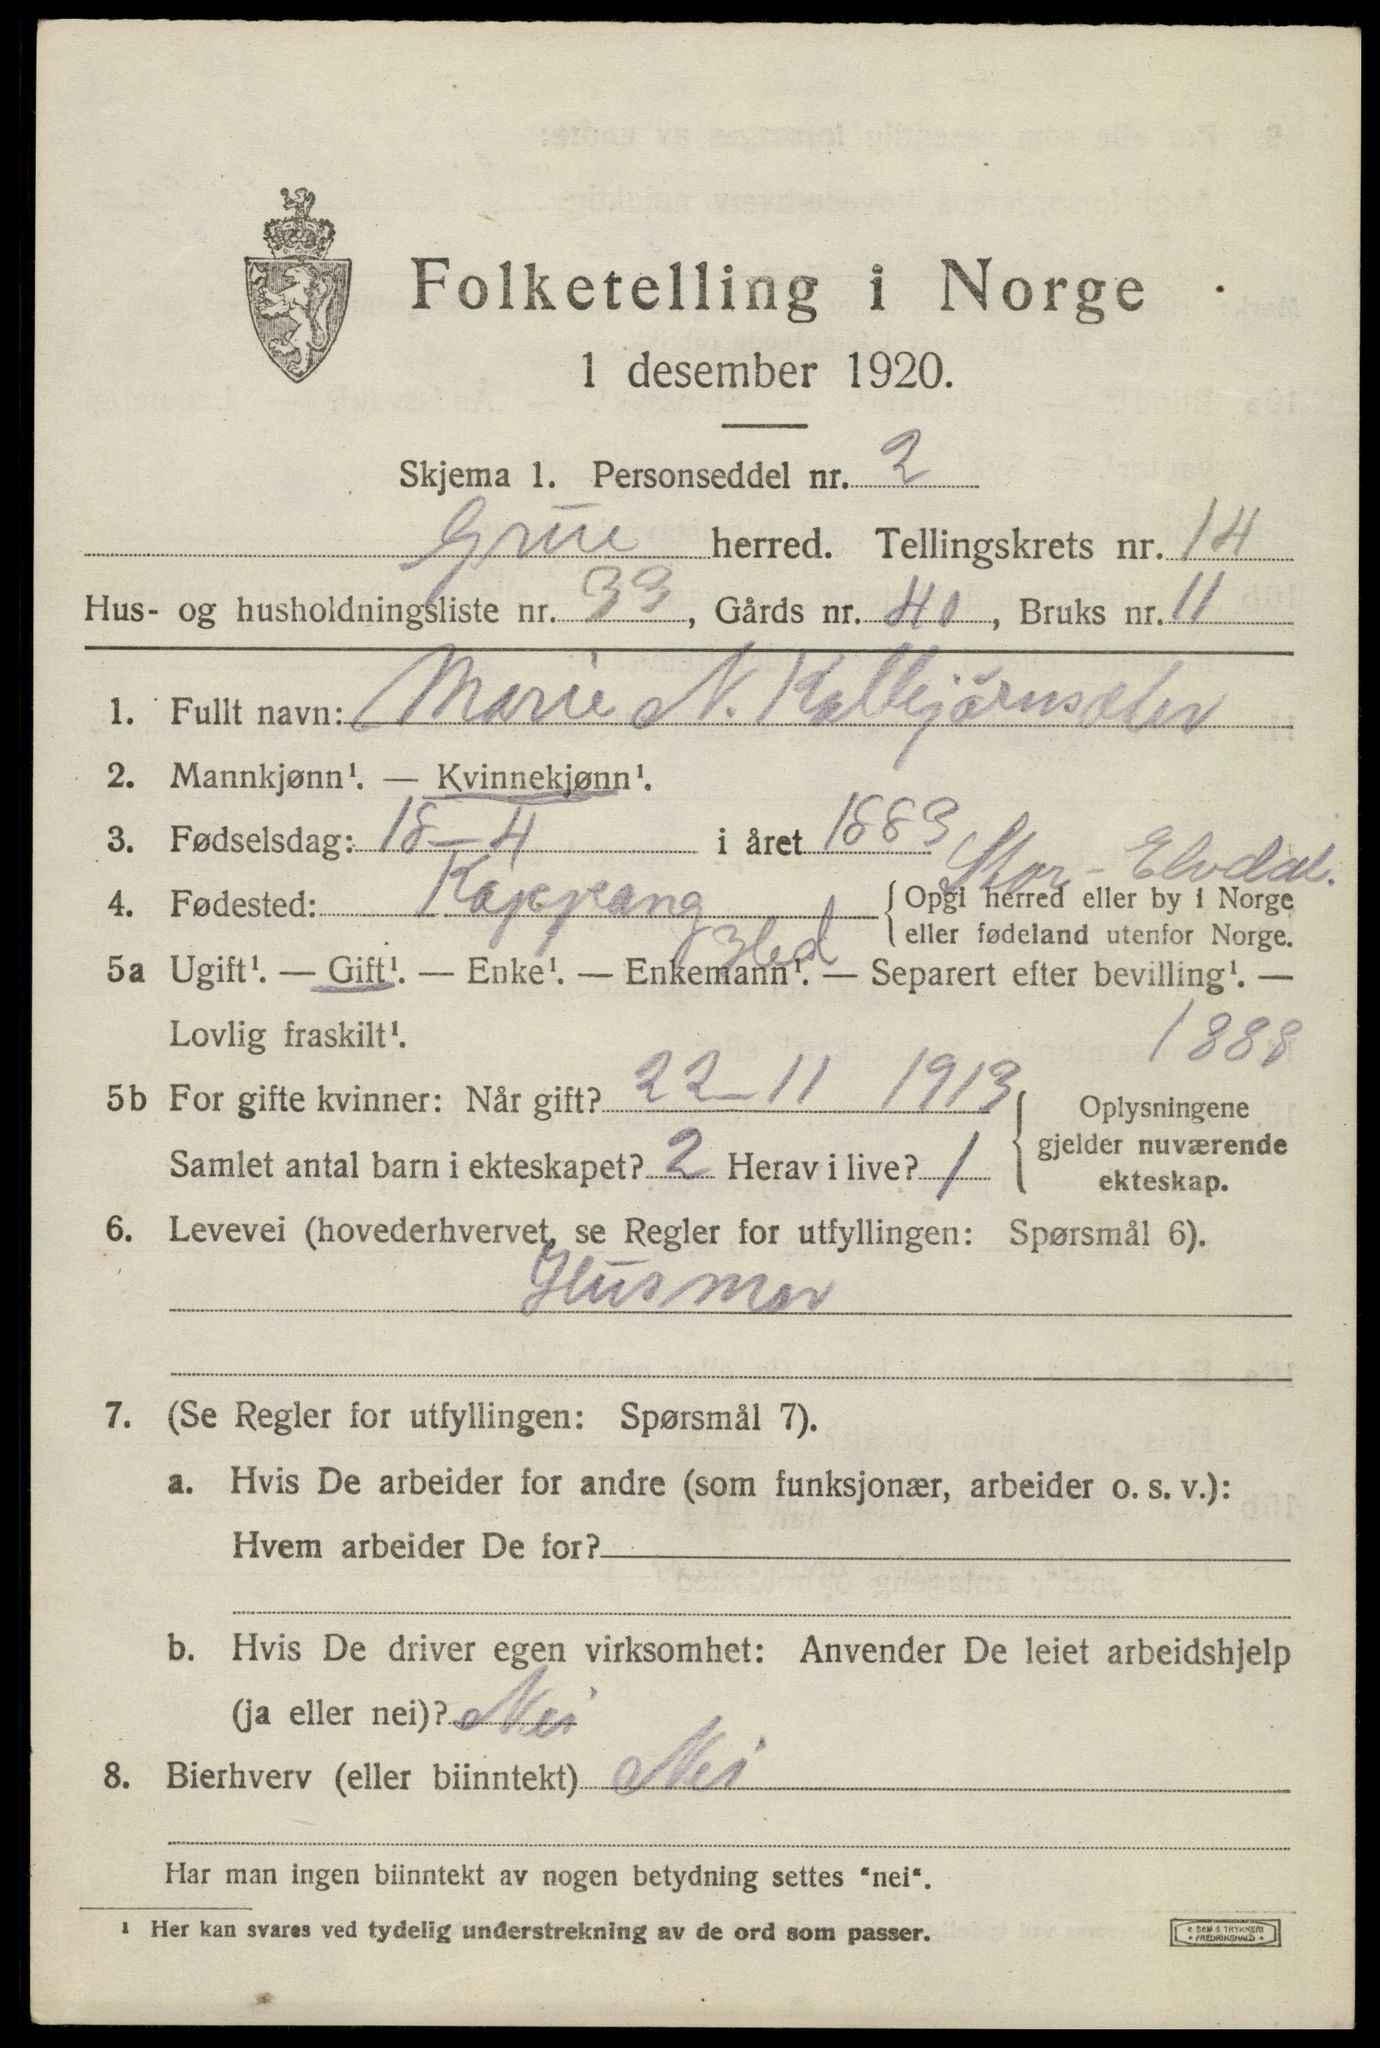 Folketelling i Norge
1 desember 1920.
Skjema 1. Personseddel nr. 2
Grue herred. Tellingskrets nr. 14
Hus- og husholdningsliste nr. 33, Gårds nr. 40, Bruks nr. 11
1. Fullt navn: Marie N. Kolbjørnsæter
2. Mannkjønn¹. — Kvinnekjønn¹.
3. Fødselsdag: 18-4 i året 1883
Stor-Elvdal.
4. Fødested: Koppang {Opgi herred eller by i Norge
eller fødeland utenfor Norge.
5a Ugift¹. — Gift¹. — Enke¹. — Enkemann¹. — Separert efter bevilling¹. —
Lovlig fraskilt¹.
1888
5b For gifte kvinner: Når gift? 22-11 1913 { Oplysningene
gjelder nuværende
ekteskap.
Samlet antal barn i ekteskapet? 2 Herav i live? 1
6. Levevei (hovederhvervet, se Regler for utfyllingen: Spørsmål 6).
Husmor
7. (Se Regler for utfyllingen: Spørsmål 7).
a. Hvis De arbeider for andre (som funksjonær, arbeider o. s. v.):
Hvem arbeider De for?
b. Hvis De driver egen virksomhet: Anvender De leiet arbeidshjelp
(ja eller nei)? Nei
8. Bierhverv (eller biinntekt) Nei
Har man ingen biinntekt av nogen betydning settes "nei".
¹ Her kan svares ved tydelig understrekning av de ord som passer.
SEM & TRYKKERI
FREDRIKSHALD